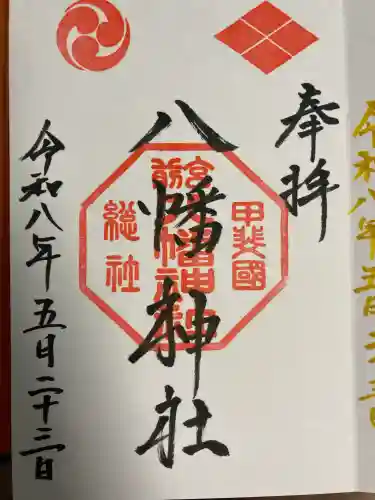 奉拝
八幡神社
甲斐國
宮前
八幡神社
総社
令和八年五月二十三日
令和八年五月二十三日